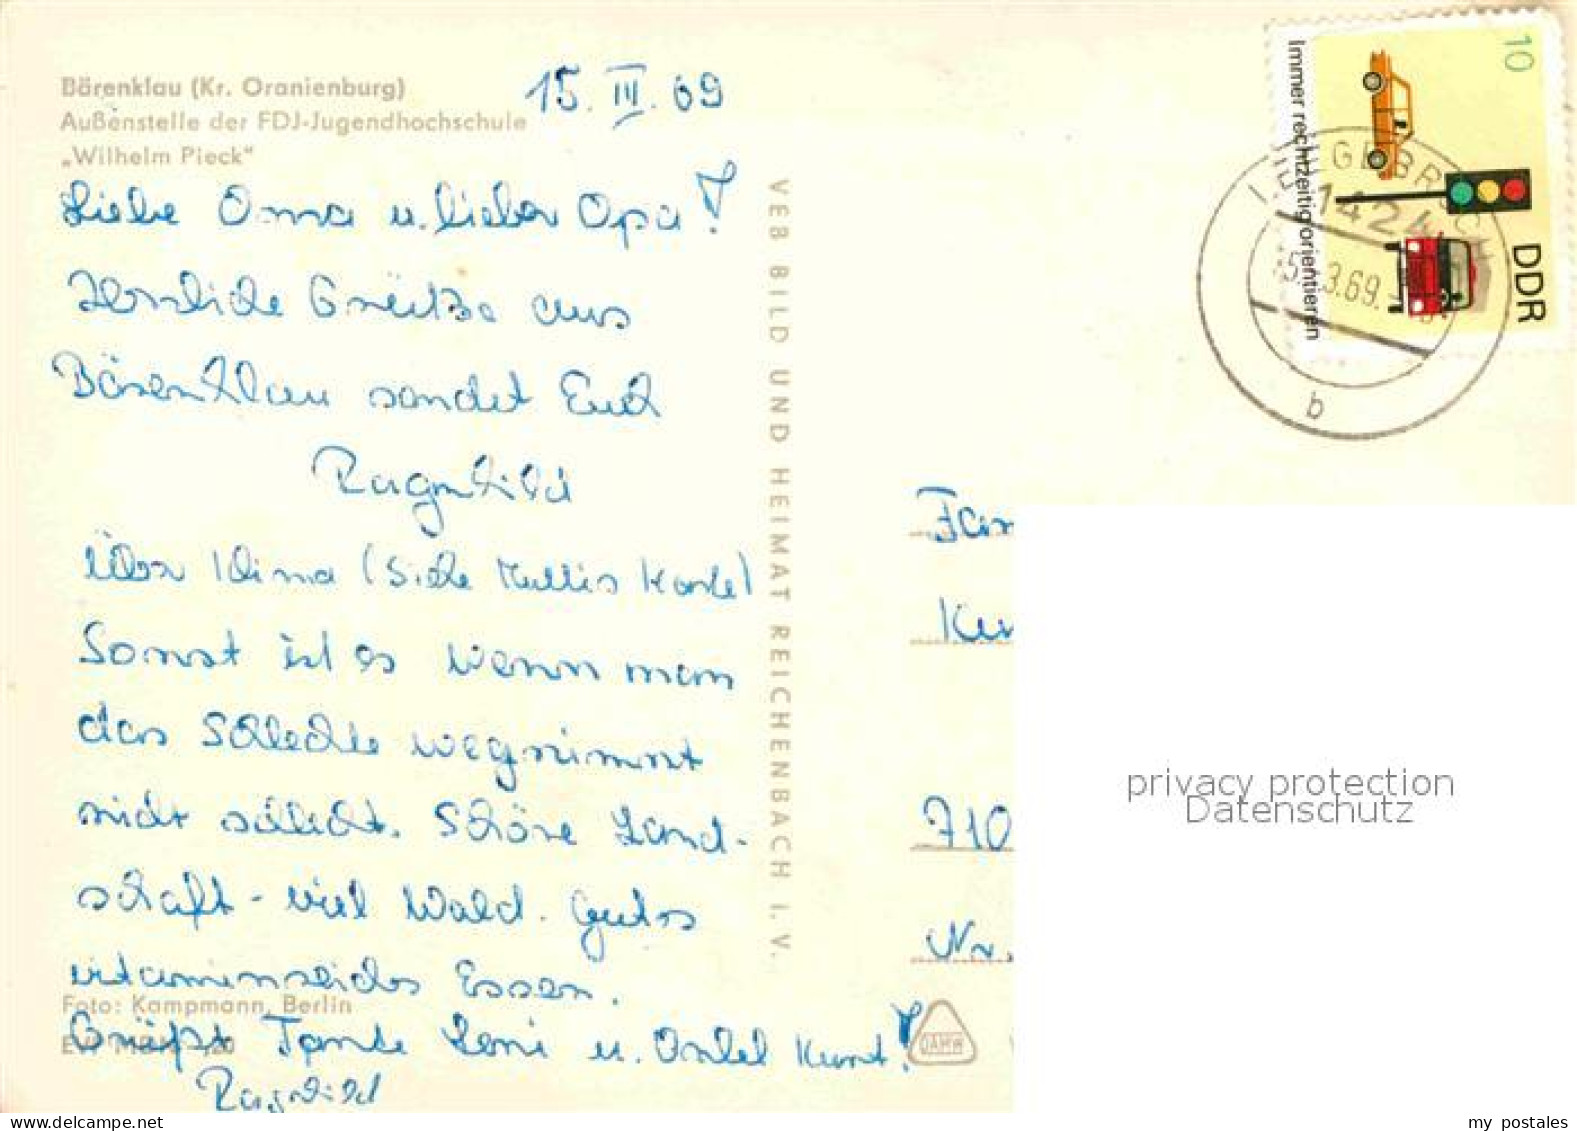 Bärenklau (Kr. Oranienburg)
Außenstelle der FDJ-Jugendhochschule
„Wilhelm Pieck"
15. III. 69
Liebe Oma u. lieber Opa!
Herzliche Grüße aus
Bärenklau sendet Euch
Ragnhild
Über Klima (Siehe Muttis Karte)
Sonst ist es wenn man
das Schlechte wegnimmt
nicht schlecht. Schöne Land-
schaft - viel Wald. Gutes
vitaminreiches Essen.
Foto: Kampmann, Berlin
Grüßt Tante Leni u. Onkel Kurt!
Ragnhild
VEB BILD UND HEIMAT REICHENBACH I. V.
10
Immer rechtzeitig orientieren
DDR
1424
3.69
b
Fam
710
Nr.
DAMW
privacy protection
Datenschutz
my postales